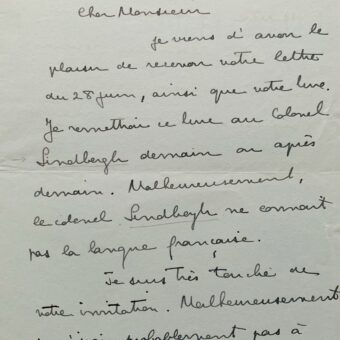 Cher Monsieur
Je viens d'avoir le
plaisir de recevoir votre lettre
du 28 juin, ainsi que votre livre.
Je remettrai ce livre au Colonel
Lindbergh demain ou après
demain. Malheureusement,
le colonel Lindbergh ne connait
pas la langue française.
Je suis très touché de
votre invitation. Malheureusement
probablement pas à